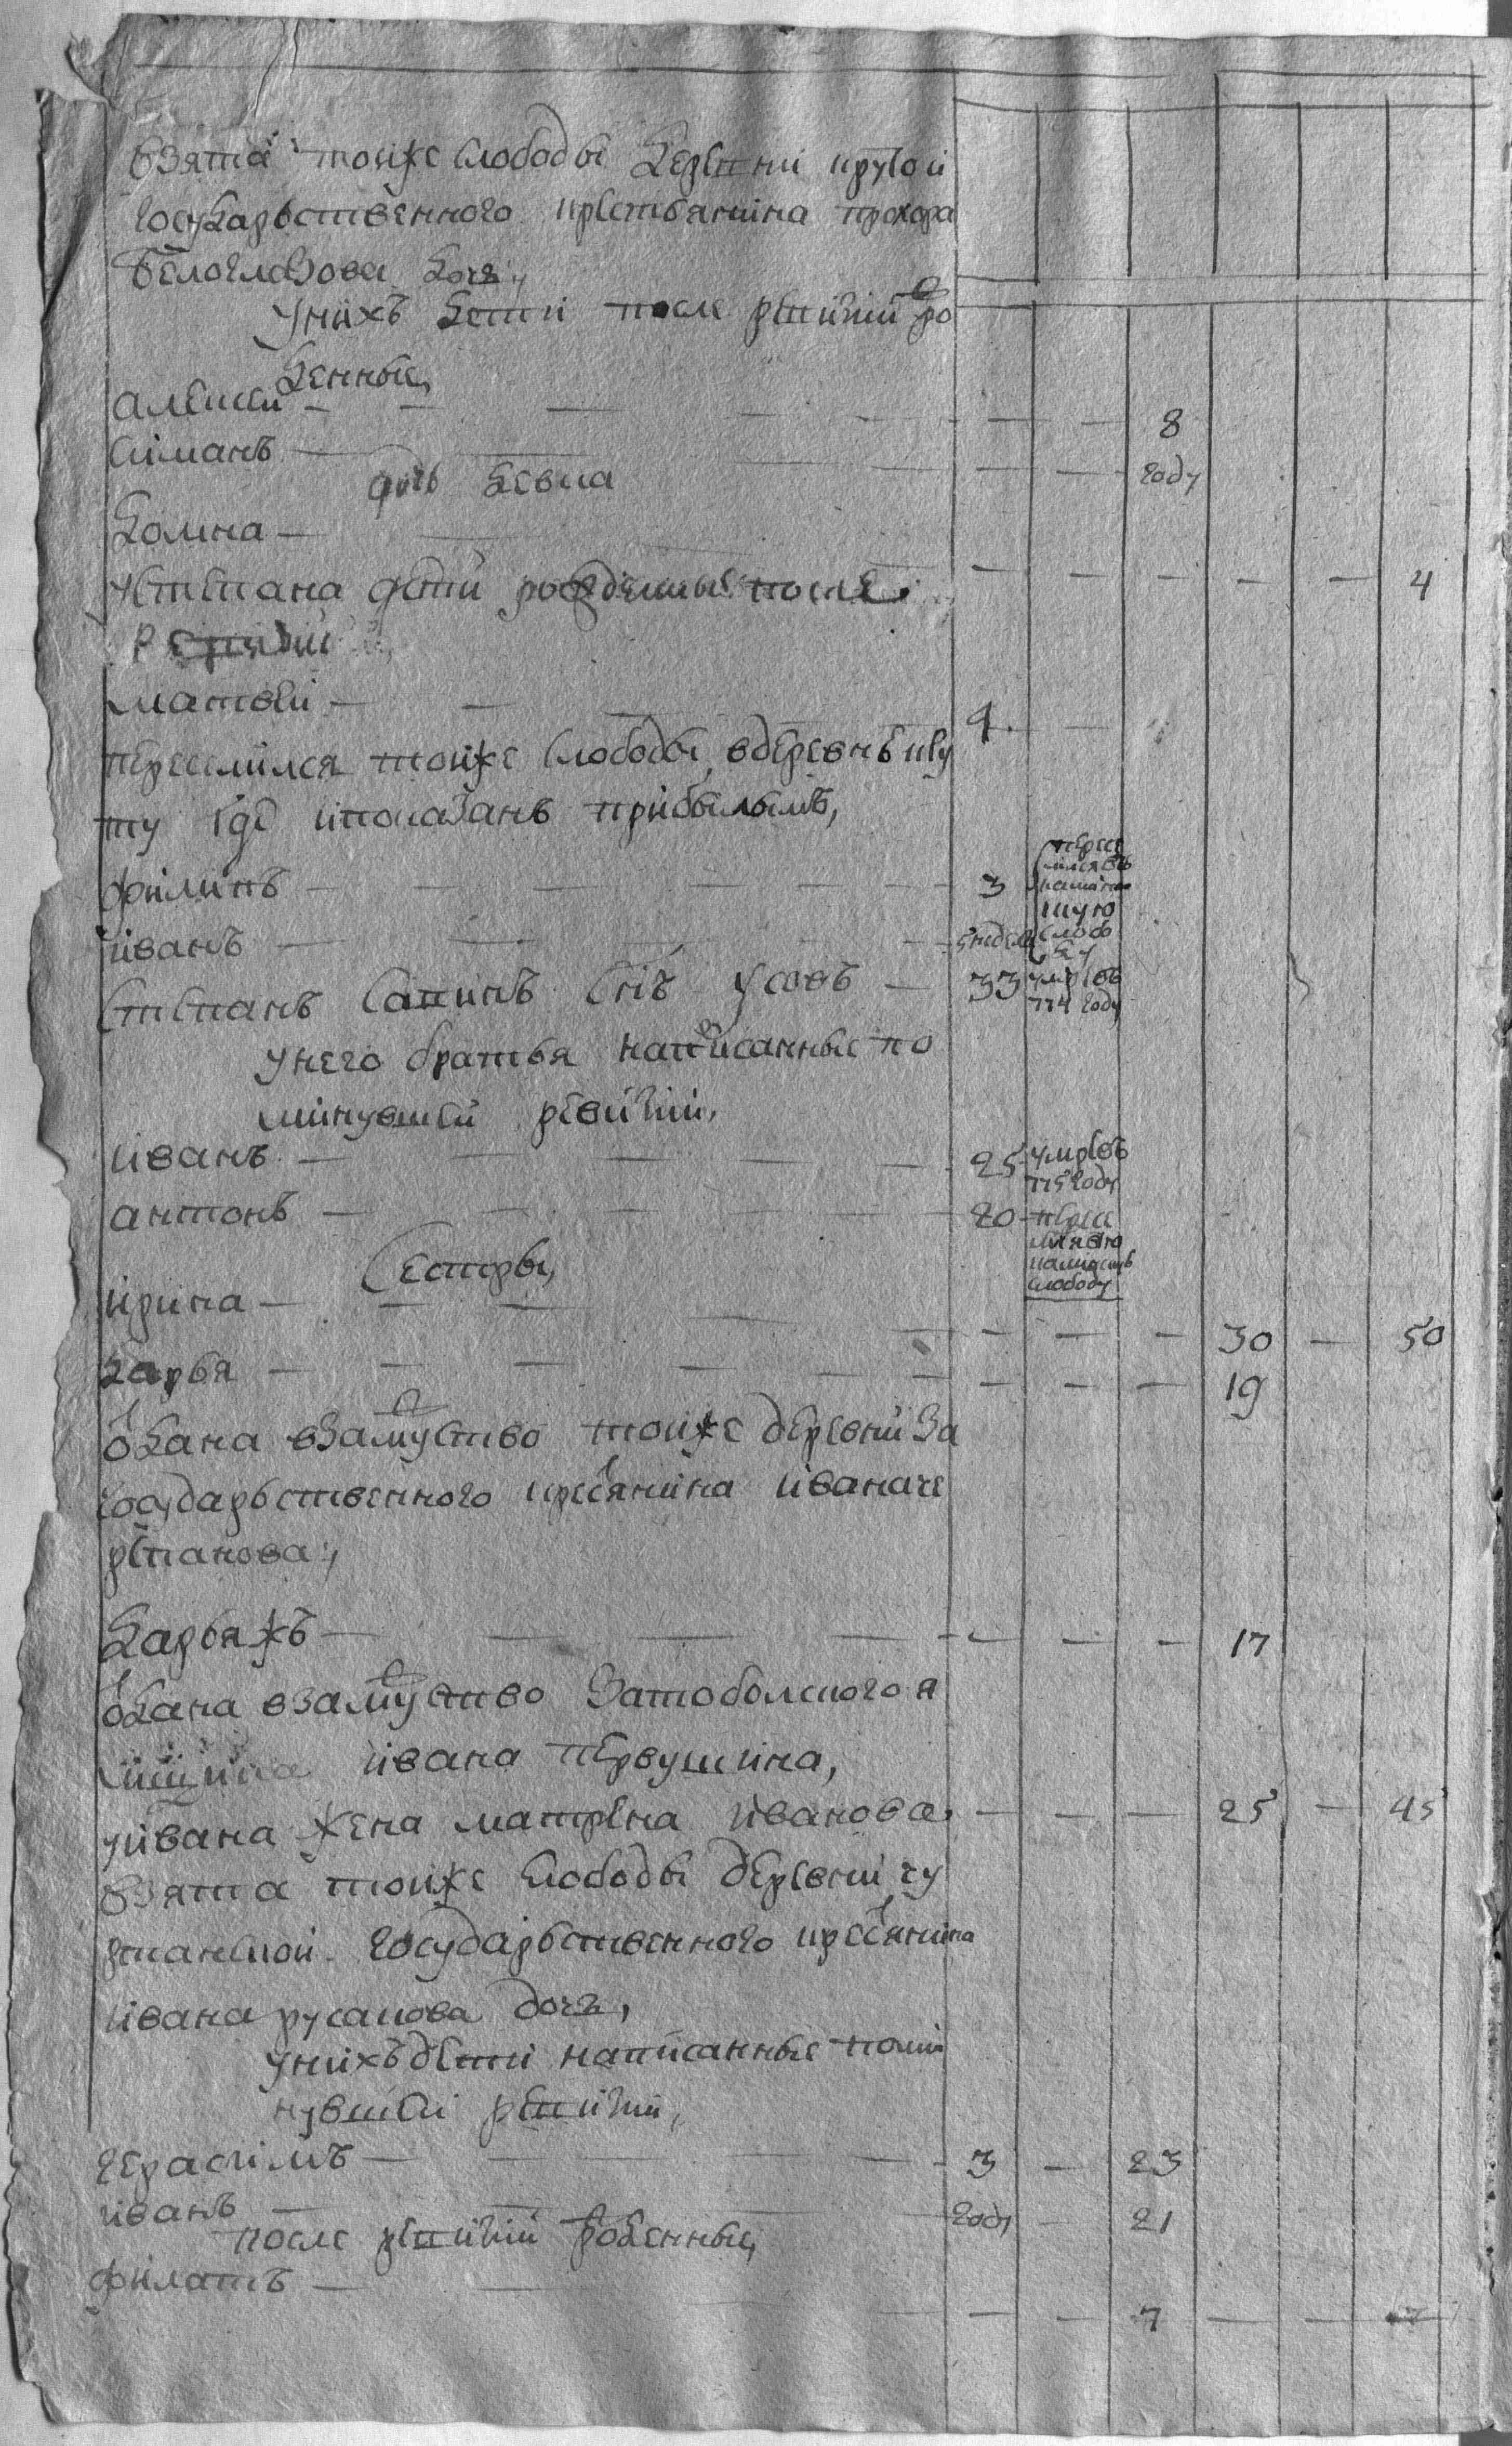 взята тоиже слободы деревни крутои
государьственного крестьянина прохора
белоглазова дочь,
у нихъ дети после ревизии ро
денные,
алексеи — 8
симанъ — году
дочь девка
домна — 4
у степана дети рожденные после
ревизии
матвеи — 4
переселился тоиже слободы в деревню
ту где и показанъ прибылымъ,
филипъ — 3 пересе
лился въ
слобо
ду
иванъ — недели
степанъ савинъ снъ усовъ — 33 умре въ
774 году
у него братья написанные по
минувшеи ревизии,
иванъ — 25 умре въ
775 году
антонъ — 20 пересе
лился в
слободу
сестры,
ирина — 30 — 50
дарья — 19
отдана в замужство тоиже деревни за
государьственного крестьянина ивана че
репанова,
дарья жъ — 17
отдана в замужство за тоболского я
мщика ивана первушина,
у ивана жена матрена иванова — 25 — 45
взята тоиже слободы деревни
государьственного крестьянина
ивана русакова дочь,
у нихъ дети написанные поми
нувшеи ревизии,
герасимъ — 3 — 23
иванъ — году — 21
после ревизии роденные,
филатъ — 7